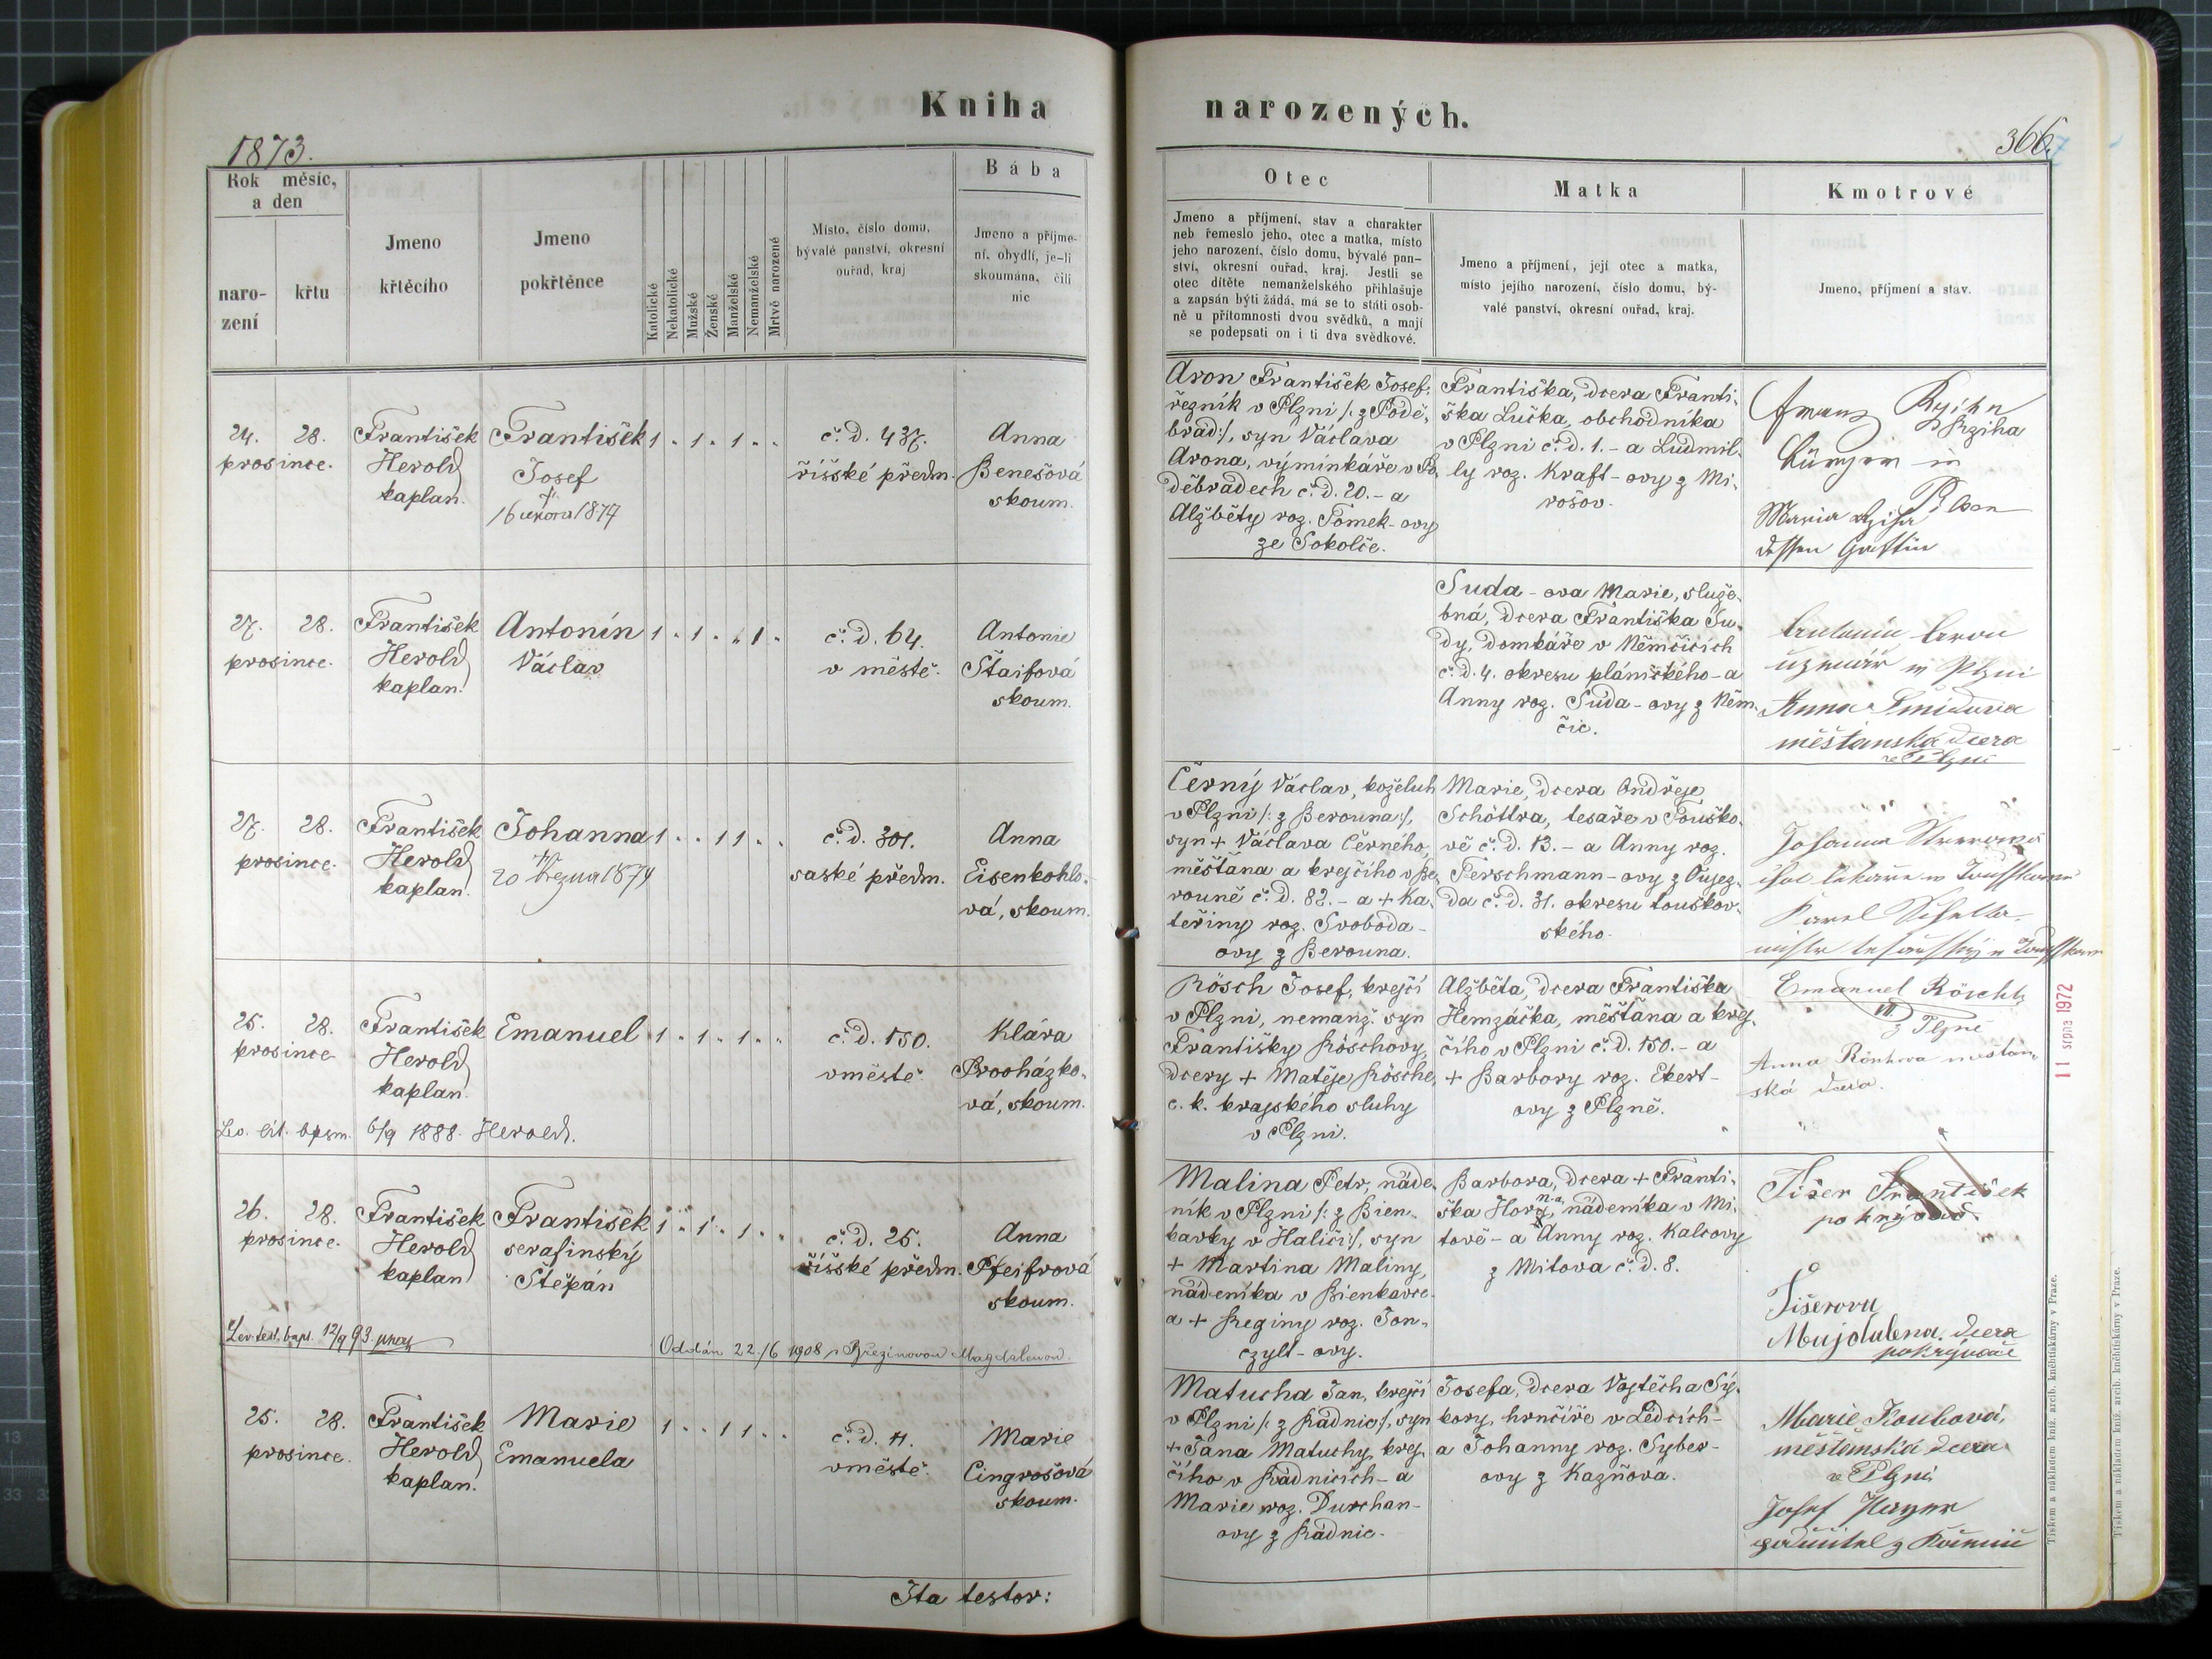 Kniha narozených.
1873.
366.
Rok měsíc,
a den
naro-
zení
křtu
Jmeno
křtěcího
Jmeno
pokřtěnce
Katolické
Nekatolické
Mužské
Ženské
Manželské
Nemanželské
Mrtvě narozené
Místo, číslo domu,
bývalé panství, okresní
ouřad, kraj
Bába
Jmeno a příjme-
ní, obydlí, je-li
skoumána, čili
nic
Otec
Jmeno a příjmení, stav a charakter
neb řemeslo jeho, otec a matka, místo
jeho narození, číslo domu, bývalé pan-
ství, okresní ouřad, kraj. Jestli se
otec dítěte nemanželského přihlašuje
a zapsán býti žádá, má se to státi osob-
ně u přítomnosti dvou svědků, a mají
se podepsati on i ti dva svědkové.
Matka
Jmeno a příjmení, její otec a matka,
místo jejího narození, číslo domu, bý-
valé panství, okresní ouřad, kraj.
Kmotrové
Jmeno, příjmení a stav.
24. 28.
prosince.
František
Herold
kaplan.
František
Josef
†
16 února 1874
1 . 1 . 1 . .
č. d. 437.
říšské předm.
Anna
Benešová
skoum.
Aron František Josef,
řezník v Plzni /: z Podě-
brad:/, syn Václava
Arona, výminkáře v Po-
děbradech č. d. 20. - a
Alžběty roz. Tomek-ovy
ze Sokolče.
Františka, dcera Franti-
ška Lučka, obchodníka
v Plzni č. d. 1. - a Ludmil-
ly roz. Kraft-ovy z Mi-
rošov.
Franz
Bürger in
Pilsen
Maria
dessen Gattin
27. 28.
prosince.
František
Herold
kaplan.
Antonín
Václav
1 . 1 . . 1 .
č. d. 64.
v městě.
Antonie
Štaifová
skoum.
Suda-ova Marie, služe-
bná, dcera Františka Su-
dy, domkáře v Němčicích
č. d. 4. okresu plánického - a
Anny roz. Suda-ovy z Něm-
čic.
v Plzni
Anna
měšťanská dcera
v Plzni
27. 28.
prosince.
František
Herold
kaplan.
Johanna
†
20 března 1874
1 . . 1 1 . .
č. d. 301.
saské předm.
Anna
Eisenkohlo-
vá, skoum.
Černý Václav, koželuh
v Plzni /: z Berouna:/,
syn + Václava Černého,
měšťana a krejčího v Be-
rouně č. d. 82. - a + Ka-
teřiny roz. Svoboda-
ovy z Berouna.
Marie, dcera Ondřeje
Schöttra, tesaře v Touško-
vě č. d. 13. - a Anny roz.
Ferschmann-ovy z Oujez-
da č. d. 31. okresu touškov-
ského.
Johanna
Karel
25. 28.
prosince
František
Herold
kaplan.
Emanuel
1 . 1 . 1 . .
č. d. 150.
v městě.
Klára
Procházko-
vá, skoum.
Rösch Josef, krejčí
v Plzni, nemanž. syn
Františky Röschovy,
dcery + Matěje Rösche,
c. k. krajského sluhy
v Plzni.
Alžběta, dcera Františka
Hemzáčka, měšťana a krej-
čího v Plzni č. d. 150. - a
+ Barbory roz. Ekert-
ovy z Plzně.
Emanuel
z Plzně
Anna
ská dcera.
6/9 1888. Herold.
26. 28.
prosince.
František
Herold
kaplan
František
serafinský
Štěpán
1 . 1 . 1 . .
č. d. 25.
říšské předm.
Anna
Pfeifrová
skoum.
Malina Petr, náde-
ník v Plzni /: z Bien-
kavky v Haliči:/, syn
+ Martina Maliny,
nádeníka v Bienkavce
a + Reginy roz. Ton-
czylt-ovy.
Barbora, dcera + Franti-
ška nádeníka v Mi-
tově - a Anny roz. Kalcovy
z Mitova č. d. 8.
Tišer František
Tišerovu
Majdalena, dcera
pokrývače
Lev. test. bapt. 12/9 93
Oddán 22./6 1908 s Březinovou Magdalenou.
25. 28.
prosince.
František
Herold
kaplan.
Marie
Emanuela
1 . . 1 1 . .
č. d. 11.
v městě.
Marie
Cingrošová
skoum.
Matucha Jan, krejčí
v Plzni /: z Radnic:/, syn
+ Jana Matuchy, krej-
čího v Radnicích - a
Marie roz. Durchan-
ovy z Radnic.
Josefa, dcera Vojtěcha Sý-
kory, hrnčíře v Ledcích -
a Johanny roz. Syber-
ovy z Kazňova.
Marie
měšťanská dcera
v Plzni
Josef
Ita testor:
11 srpna 1972
Tiskem a nákladem kníž. arcib. kněhtiskárny v Praze.
Tiskem a nákladem kníž. arcib. kněhtiskárny v Praze.